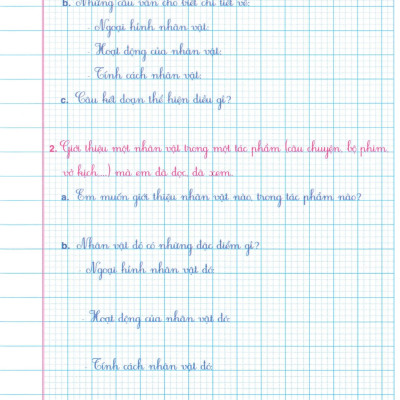 b. Những câu văn cho biết chi tiết về:
- Ngoại hình nhân vật:
- Hoạt động của nhân vật:
- Tính cách nhân vật:
c. Câu kết đoạn thể hiện điều gì?
2. Giới thiệu một nhân vật trong một tác phẩm (câu chuyện, bộ phim,
vở kịch,...) mà em đã đọc, đã xem.
a. Em muốn giới thiệu nhân vật nào, trong tác phẩm nào?
b. Nhân vật đó có những đặc điểm gì?
- Ngoại hình nhân vật đó:
- Hoạt động của nhân vật đó:
- Tính cách nhân vật đó: